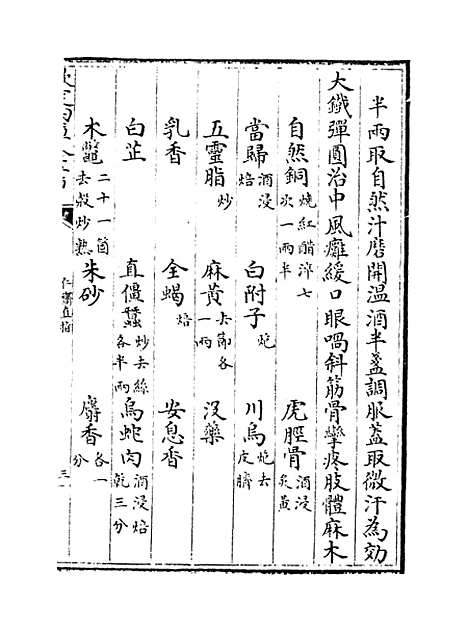 半兩取自然汁磨開溫酒半盞調服蓋取微汗為効
大鐵彈圓治中風癱緩口眼喎斜筋骨攣疼肢體麻木
自然銅燒紅醋淬七次一兩半 虎脛骨酒浸炙黃
當歸酒浸焙 白附子炮 川烏炮去皮臍
五靈脂炒 麻黃去節各一兩 沒藥
乳香 全蝎焙 安息香
白芷 直僵蠶炒去絲各半兩 烏蛇肉酒浸焙乾三分
木鼈二十一箇去殼炒熟 朱砂 麝香各一分
仁齋直指